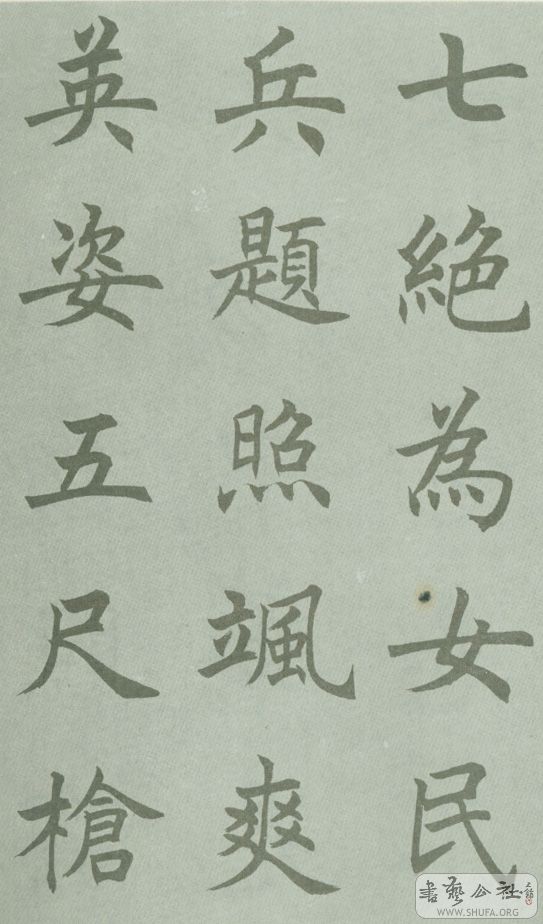 七絕為女民
兵題照颯爽
英姿五尺槍
書藝公社
WWW.SHUFA.ORG